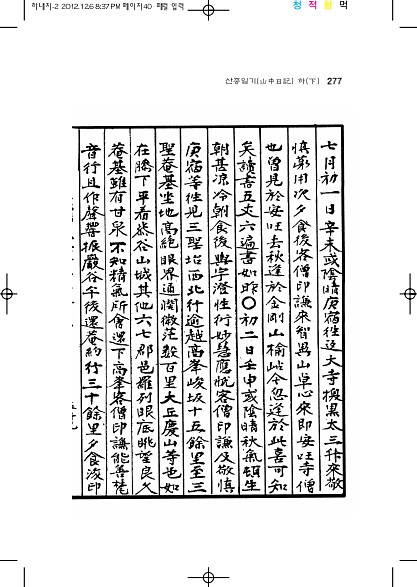 하네지-2 2012.12.6 8:37 PM 페이지40 페럴 입력
청 적 황 먹
산중일기(山中日記) 하(下) 277
七月初一日辛未或陰晴庚宿往近大寺換黑太三升來敬
慎粥用次夕食後客僧印謙來智異山卓心來即安旺寺僧
也曾見於安旺去秋逢於金剛山榆岾今忽逢於此喜可知
矣讀書五丈六遍書如昨○初二日壬申或陰晴秋氣頓生
朝甚凉冷朝食後與宇澄性行妙慧應悅客僧印謙及敬慎
庚宿等往見三聖坮西北行逾越高峯峻坂十五餘里至三
聖菴基坐地高絶眼界通濶微茫数百里大丘慶山等邑如
在膝下平看恭谷山城其他六七郡邑羅列眼底眺望良久
菴基雖有甘泉不知精氣所會還下高峯客僧印謙能善梵
音行且作聲響振巖谷午後還菴約行三十餘里夕食後印